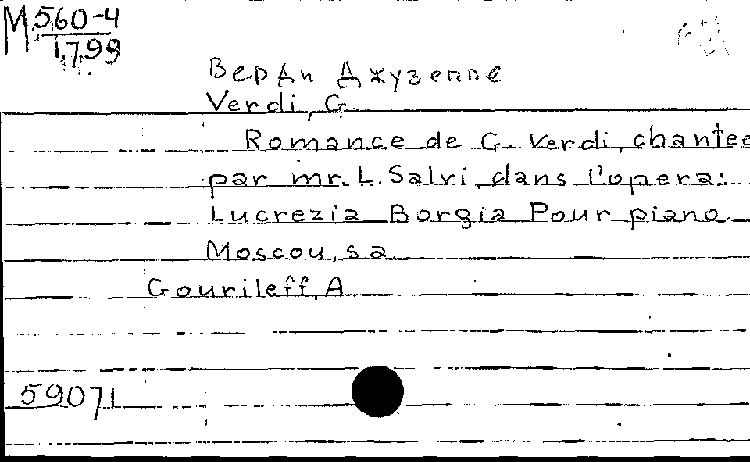 М 560-4
1799
Верди Джузеппе
Verdi, G.
Romance de G. Verdi, chantee
par mr. L. Salvi dans l'opera:
Lucrezia Borgia Pour piano
Moscou, s a
Gourileff, A
59071